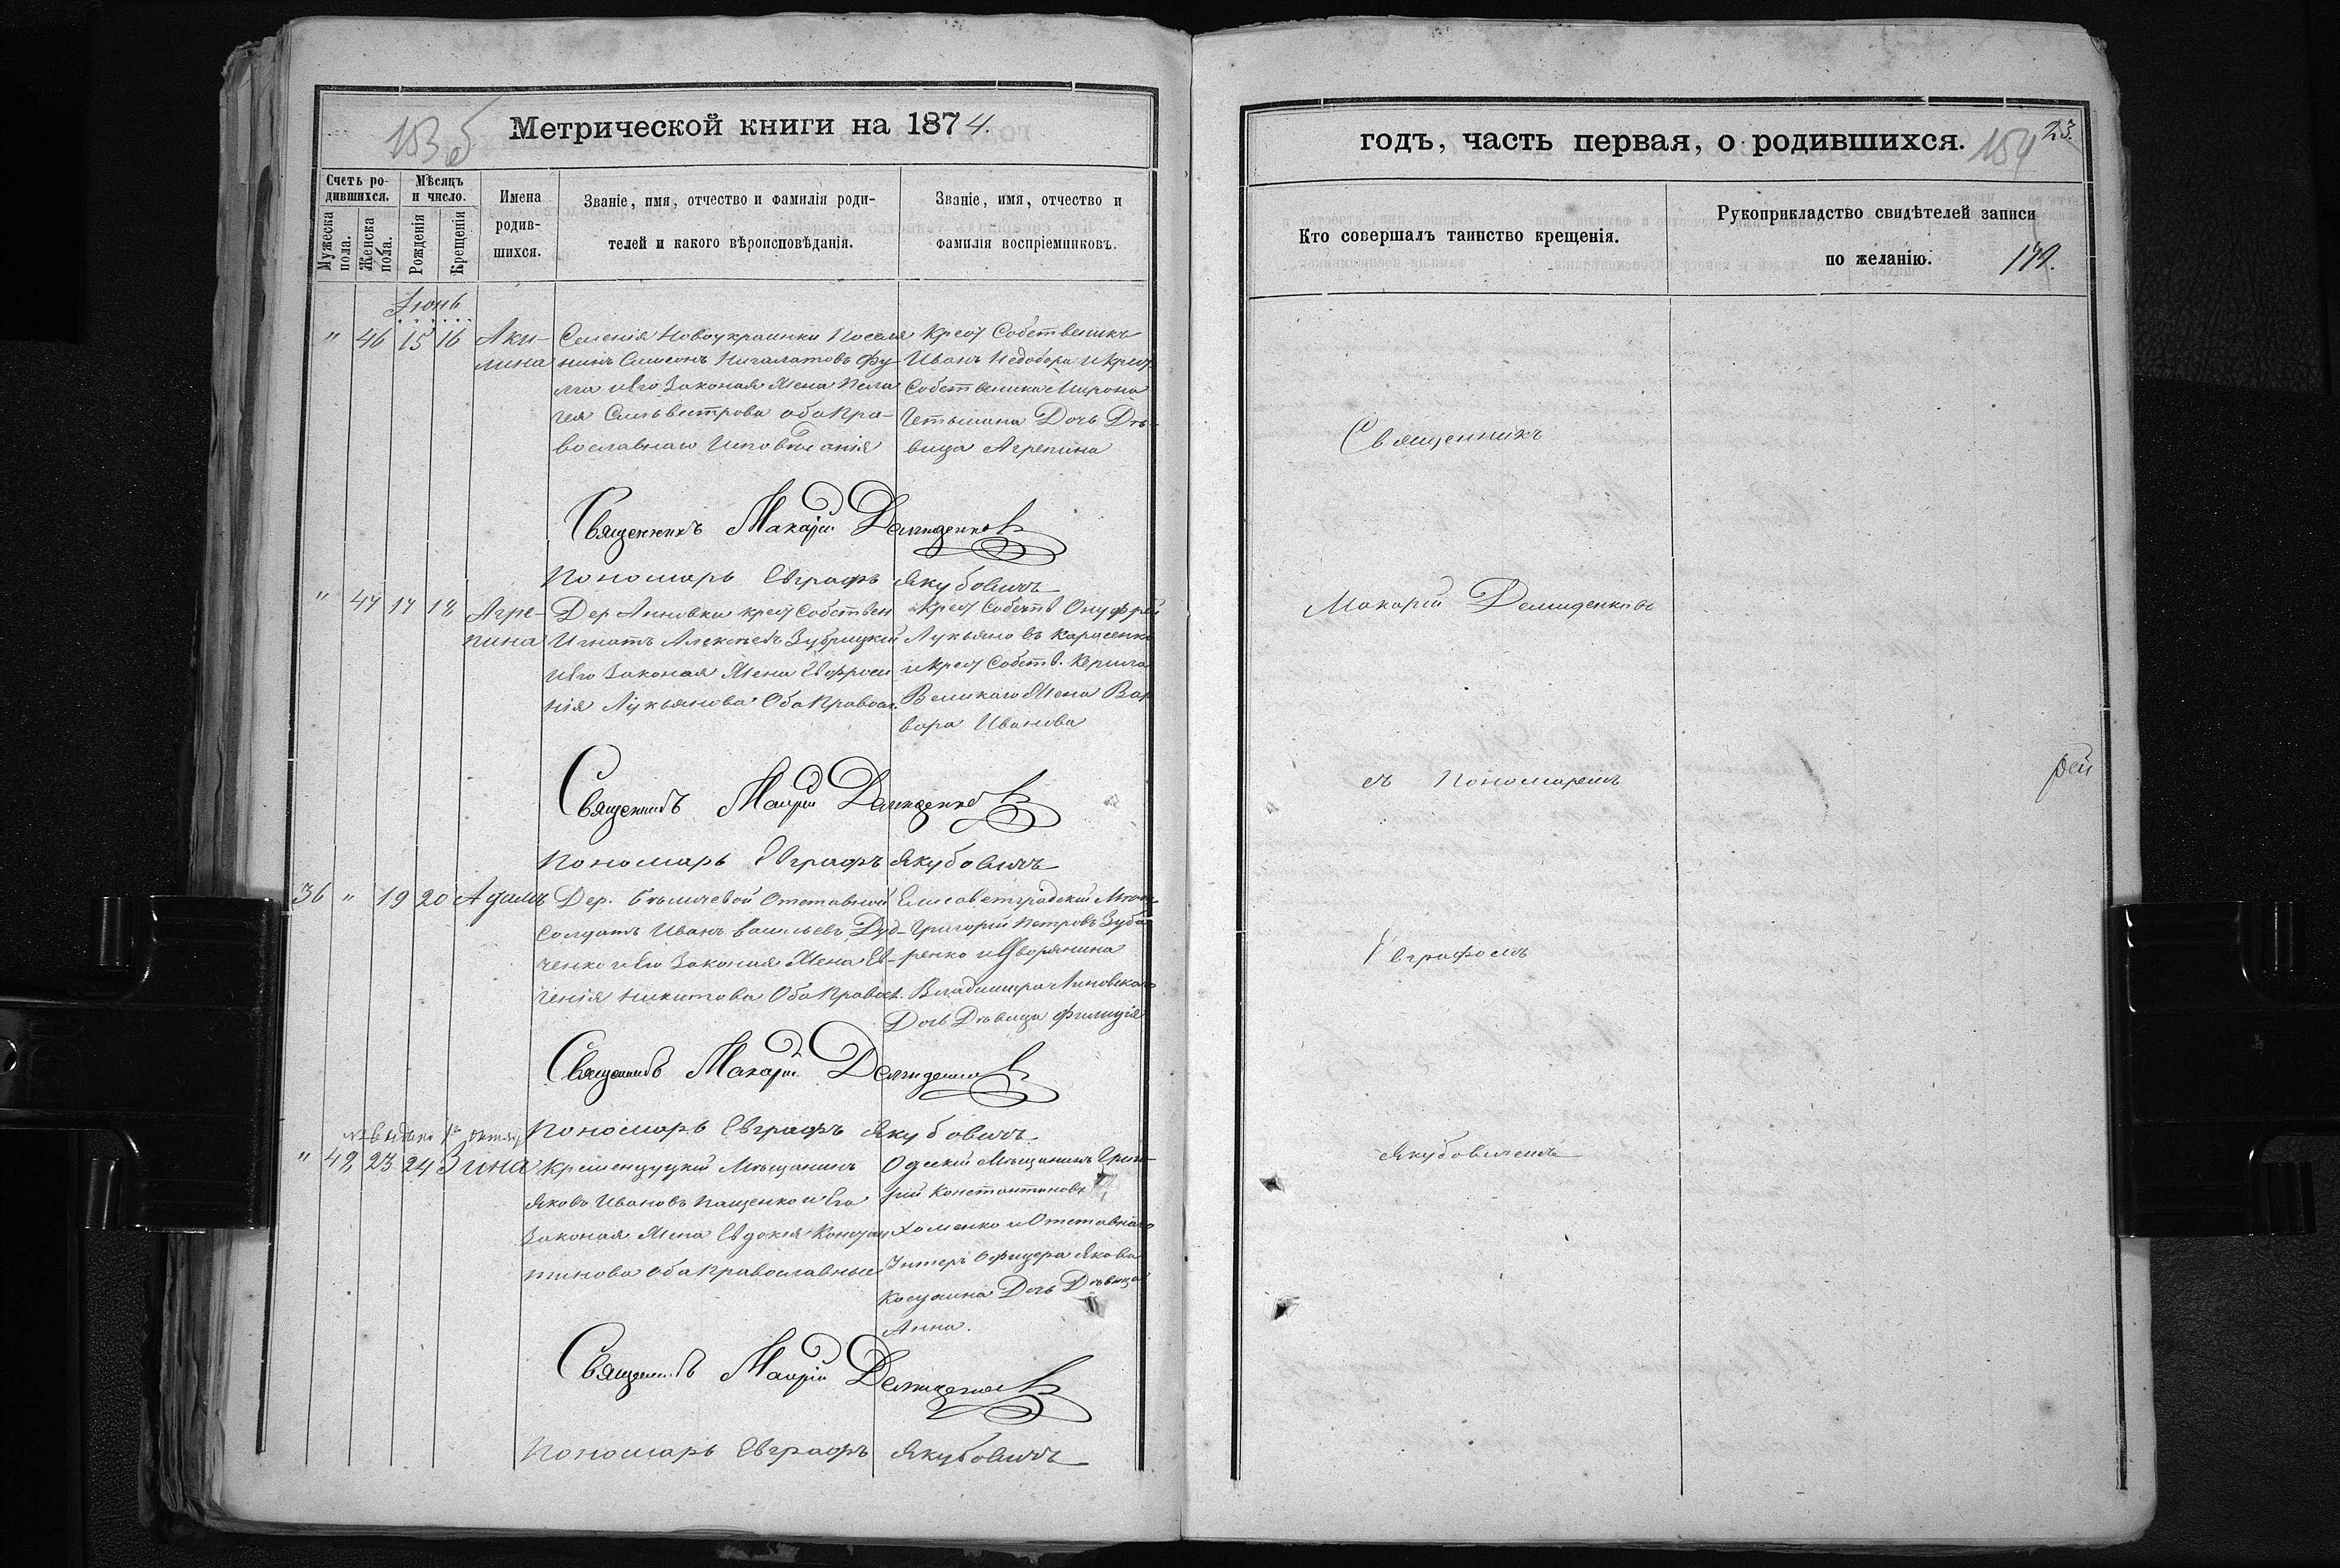 Метрической книги на 1874.
153 об
Счетъ ро-
дившихся.
Мужеска
пола.
Женска
пола.
Мѣсяцъ
и число.
Рожденія
Крещенія
Имена
родив-
шихся.
Званіе, имя, отчество и фамилія роди-
телей и какого вѣроисповѣданія.
Званіе, имя, отчество и
фамилія воспріемниковъ.
Іюнь
" 46 15 16 Аки-
лина
Селенія Новоукраинки Поселя
нинъ Симеонъ Фу-
и его Законая Жена Пела
гея Сильвестрова оба Пра-
вославнаго Исповѣданія
Крест Собственикъ
Иванъ Недобора и Крест
Собственика Мирона
Гетьмана Дочь Дѣ-
вица Агрепина
Священникъ Макарій Демиденковъ
Пономарь Евграфъ Якубовичъ
" 47 17 18 Агре-
пина
Дер Анновки крест Собствен
Игнатъ Алексѣевъ Зубрицкій
и его Законая Жена Евфроси
нія Лукьянова Оба Правосл.
Крест Собств Онуфрій
Лукьяновъ Карасенко
и крест Собств. Кирила
Великаго Жена Вар
вара Иванова
Священникъ Макарій Демиденковъ
Пономарь Евграфъ Якубовичъ
36 " 19 20 Адамъ
Дер. Отставной
Солдатъ Иванъ Васильевъ Дуд-
ченко и его Законая Жена Ев-
генія Никитова Оба Правосл.
Елисаветградскій Мѣщ
Григорій Петровъ Зуба-
ренко и Дворянина
Владимира Линовскаго
Дочь Дѣвица Филиція
Священникъ Макарій Демиденковъ
Пономарь Евграфъ Якубовичъ
" 48 23 24 Зина
Кременчуцкій Мѣщанинъ
Яковъ Ивановъ Пащенко и Его
Законая Жена Евдокія Констан
тинова оба Православные
Одескій Мѣщанинъ Григо-
рій Константиновъ
Хоменко и Отставнаго
Унтеръ Офицера Якова
Дочь Дѣвица
Анна.
Священникъ Макарій Демиденковъ
Пономарь Евграфъ Якубовичъ
годъ, часть первая, о родившихся.
154
23.
Кто совершалъ таинство крещенія.
Рукоприкладство свидѣтелей записи
по желанію.
179.
Священникъ
Макарій Демиденковъ
съ Пономаремъ
рей
Евграфомъ
Якубовичемъ